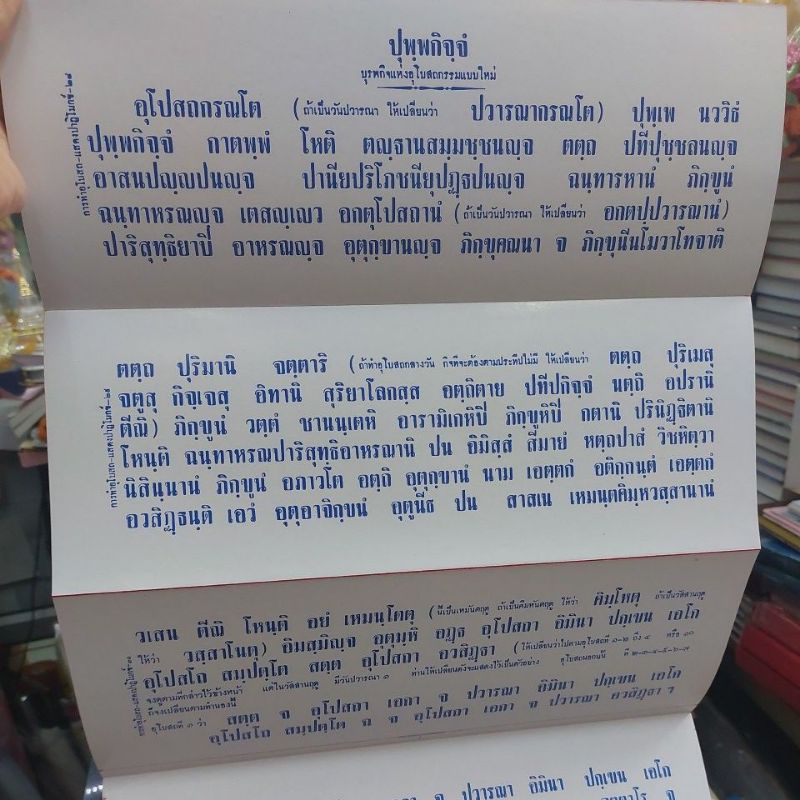 ปุพฺพกิจฺจํ
บุรพกิจแห่งอุโบสถกรรมแบบใหม่
อุโปสถกรณโต (ถ้าเป็นวันปวารณา ให้เปลี่ยนว่า ปวารณากรณโต) ปุพฺเพ นววิธํ
ปุพฺพกิจฺจํ กาตพฺพํ โหติ ตณฺฐานสมฺมชฺชนญฺจ ตตฺถ ปทีปุชฺชลนญฺจ
อาสนปญฺญปนญฺจ ปานียปริโภชนียุปฏฺฐปนญฺจ ฉนฺทารหานํ ภิกฺขูนํ
ฉนฺทาหรณญฺจ เตสญฺเญว อกตุโปสถานํ (ถ้าเป็นวันปวารณา ให้เปลี่ยนว่า อกตปฺปวารณานํ)
ปาริสุทฺธิยาปิ อาหรณญฺจ อุตุกฺขานญฺจ ภิกฺขุคณนา จ ภิกฺขุนีนโมวาโทจาติ
การทำอุโบสถ-แสดงปาฏิโมกข์-๒๘
ตตฺถ ปุริมานิ จตฺตาริ (ถ้าทำอุโบสถกลางวัน กิจที่จะต้องตามประทีปไม่มี ให้เปลี่ยนว่า ตตฺถ ปุริเมสุ
จตูสุ กิจฺเจสุ อิทานิ สุริยาโลกสฺส อตฺถิตาย ปทีปกิจฺจํ นตฺถิ อปรานิ
ตีณิ) ภิกฺขูนํ วตฺตํ ชานนฺเตหิ อารามิเกหิปิ ภิกฺขูหิปิ กตานิ ปรินิฏฺฐิตานิ
โหนฺติ ฉนฺทาหรณปาริสุทฺธิอาหรณานิ ปน อิมิสฺสํ สีมายํ หตฺถปาสํ วิชหิตฺวา
นิสินฺนานํ ภิกฺขูนํ อภาวโต นตฺถิ อุตุกฺขานํ นาม เอตฺตกํ อติกฺกนฺตํ เอตฺตกํ
อวสิฏฺฐนฺติ เอวํ อุตุอาจิกฺขนํ อุตูนีธ ปน สาสเน เหมนฺตคิมฺหวสฺสานานํ
การทำอุโบสถ-แสดงปาฏิโมกข์-๒๙
วเสน ตีณิ โหนฺติ อยํ เหมนฺโตตุ (นี้เป็นเหมันตฤดู ถ้าเป็นคิมหันตฤดู ให้ว่า คิมฺโหตุ ถ้าเป็นวัสสานฤดู
ให้ว่า วสฺสาโนตุ) อิมสฺมิญฺจ อุตุมฺหิ อฏฺฐ อุโปสถา อิมินา ปกฺเขน เอโก
อุโปสโถ สมฺปตฺโต สตฺต อุโปสถา อวสิฏฺฐา
สตฺต จ อุโปสถา เอกา จ ปวารณา อิมินา ปกฺเขน เอโก
อุโปสโถ สมฺปตฺโต ฉ จ อุโปสถา เอกา จ ปวารณา อวสิฏฺฐา ฯ
จ ปวารณา อิมินา ปกฺเขน เอโก